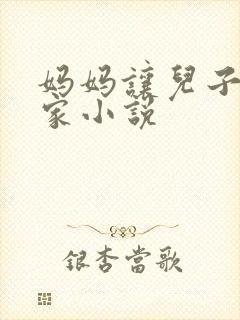 妈妈讓兒子
家小說
銀杏當歌